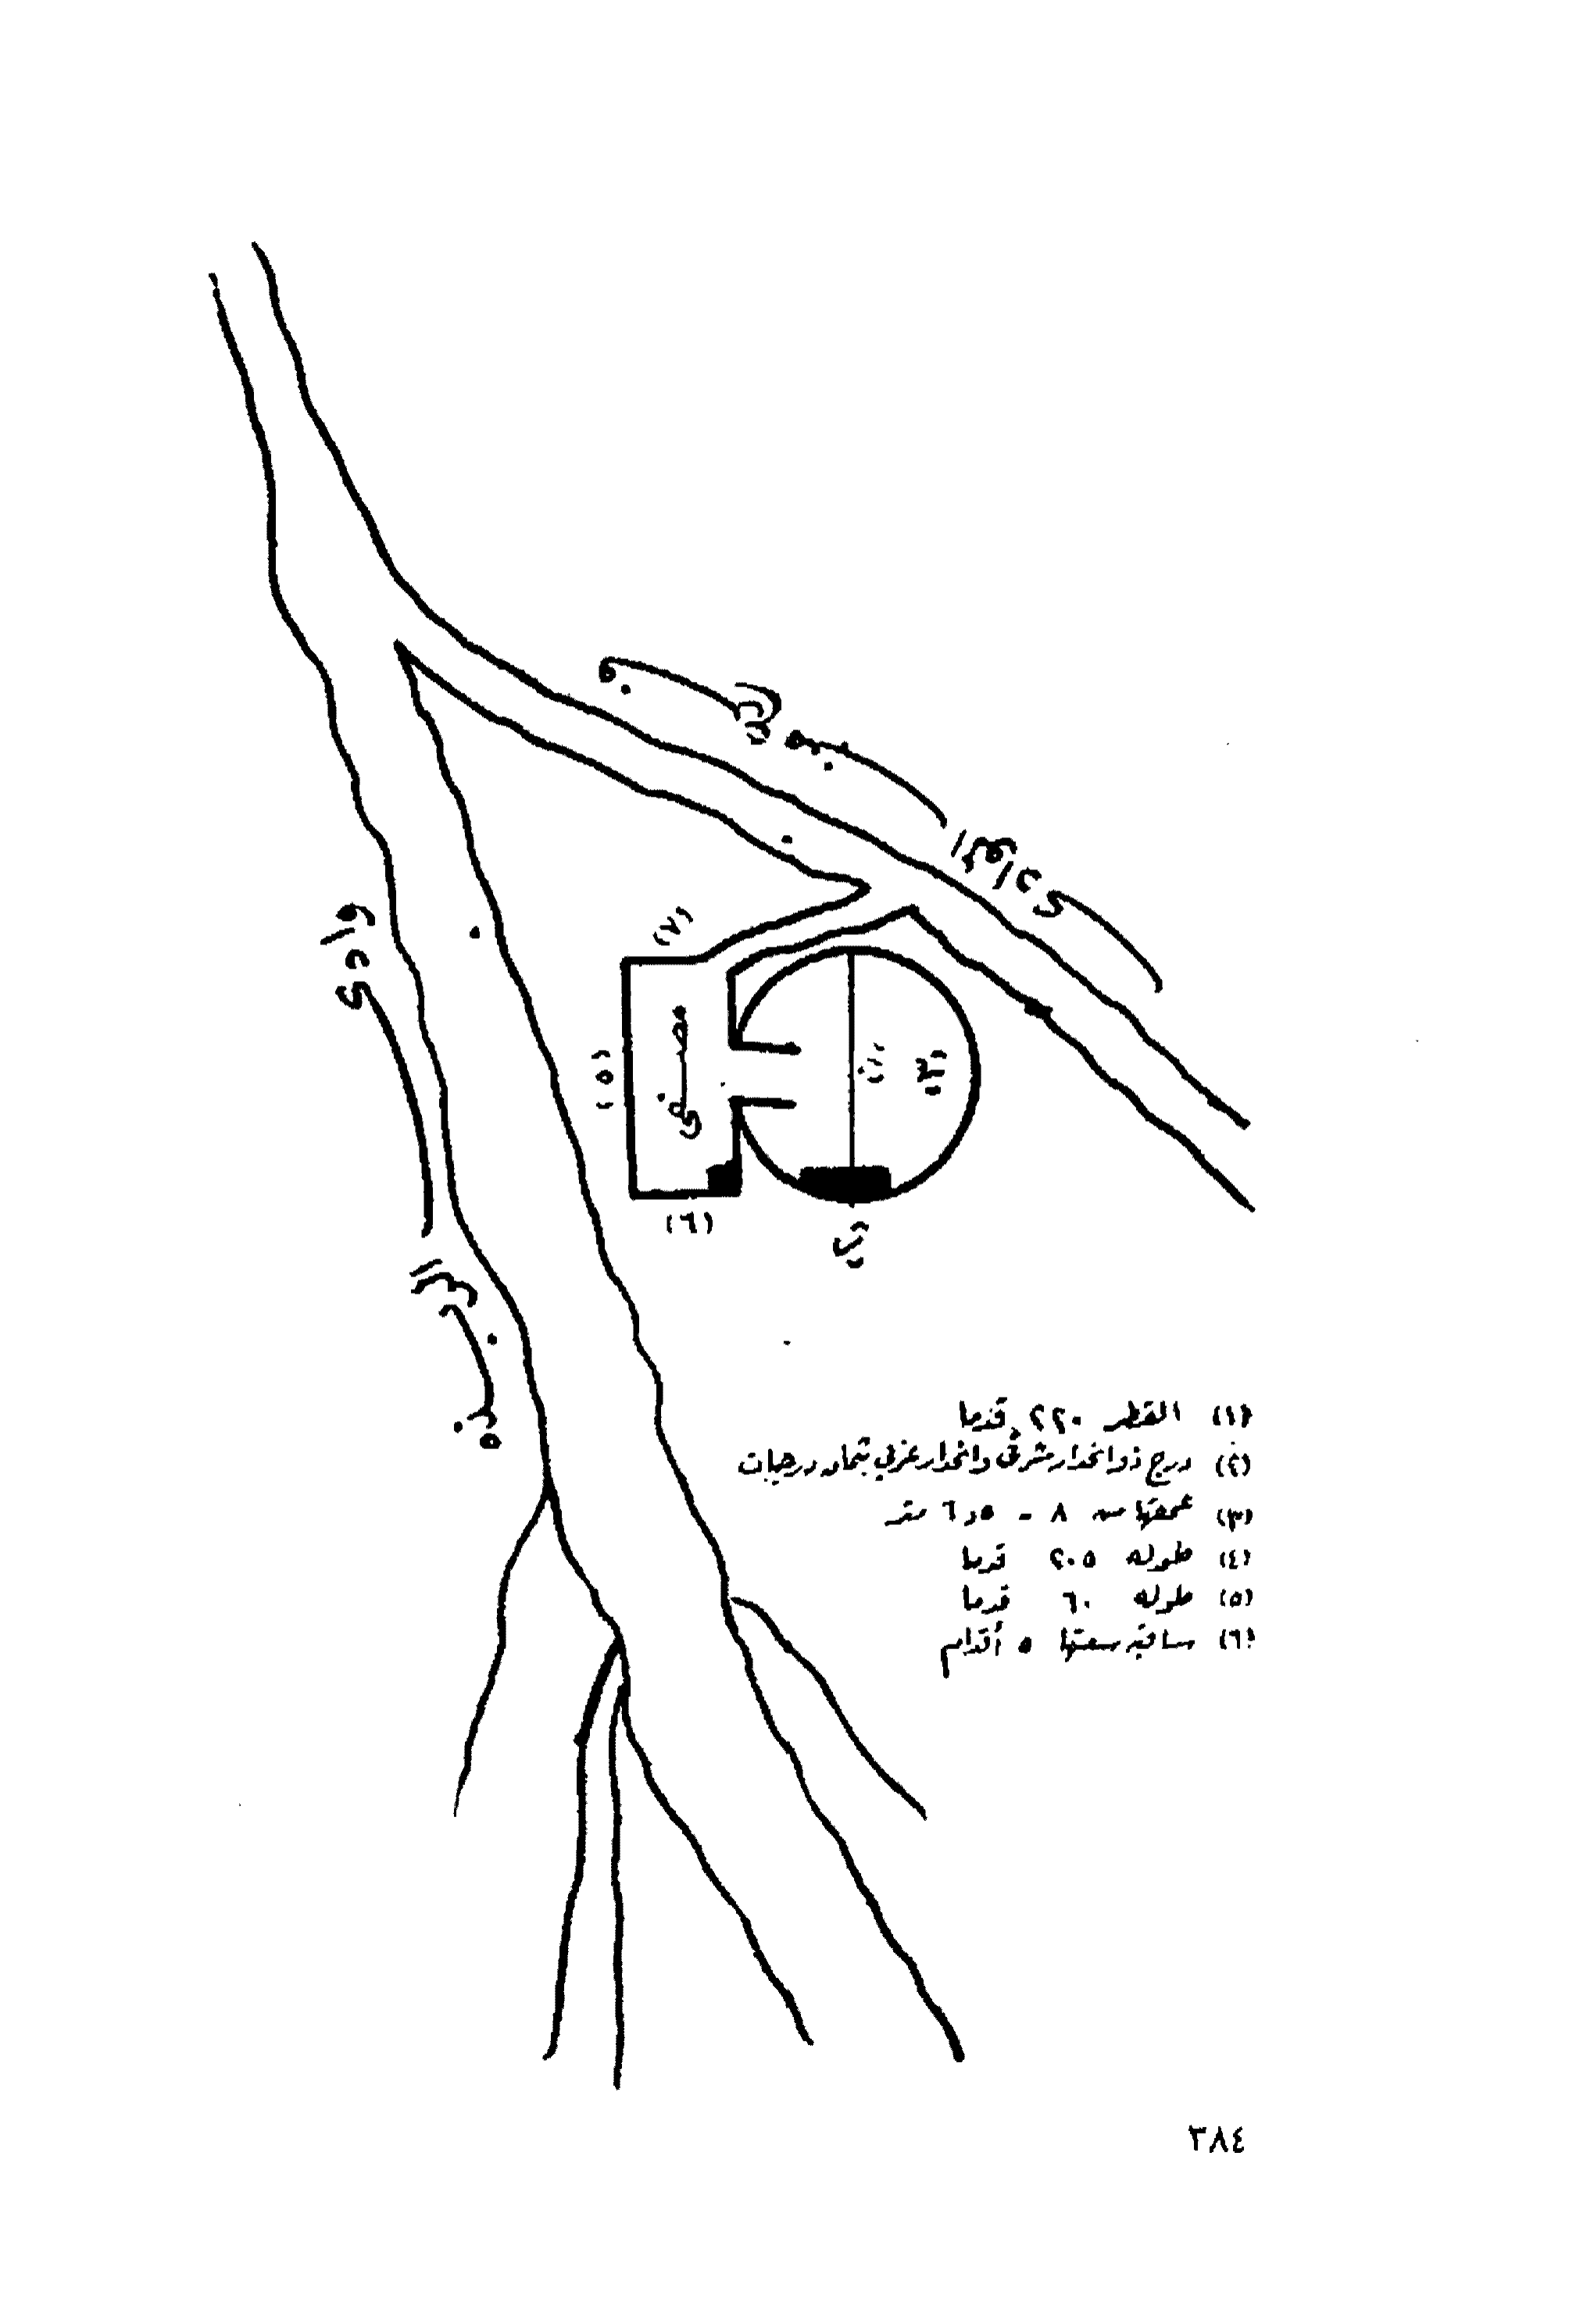 وادي
(٧)
(٥)
مصفى
(١)
(٣)
(٦)
(٢)
(١) القطر ٢٢٠ قدما
(٢) درج ذو انحدار شرقي وانحدار غربي بثمان درجات
(٣) عمقها من ٨ - ٦٫٥ متر
(٤) طوله ٢٠٥ قدما
(٥) طوله ٦٠ قدما
(٦) ساقية سعتها ٥ أقدام
٣٨٤